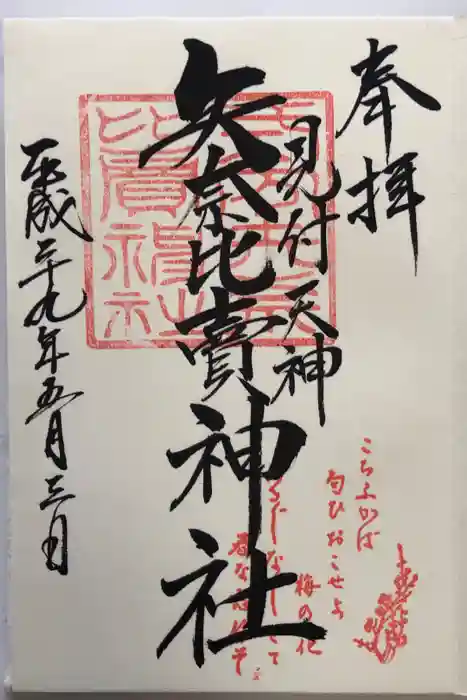 奉拝
見付天神
矢奈比賣神社
平成二十九年五月三日
こちふかば
匂ひおこせよ
梅の花
あるじなしとて
春な忘れそ